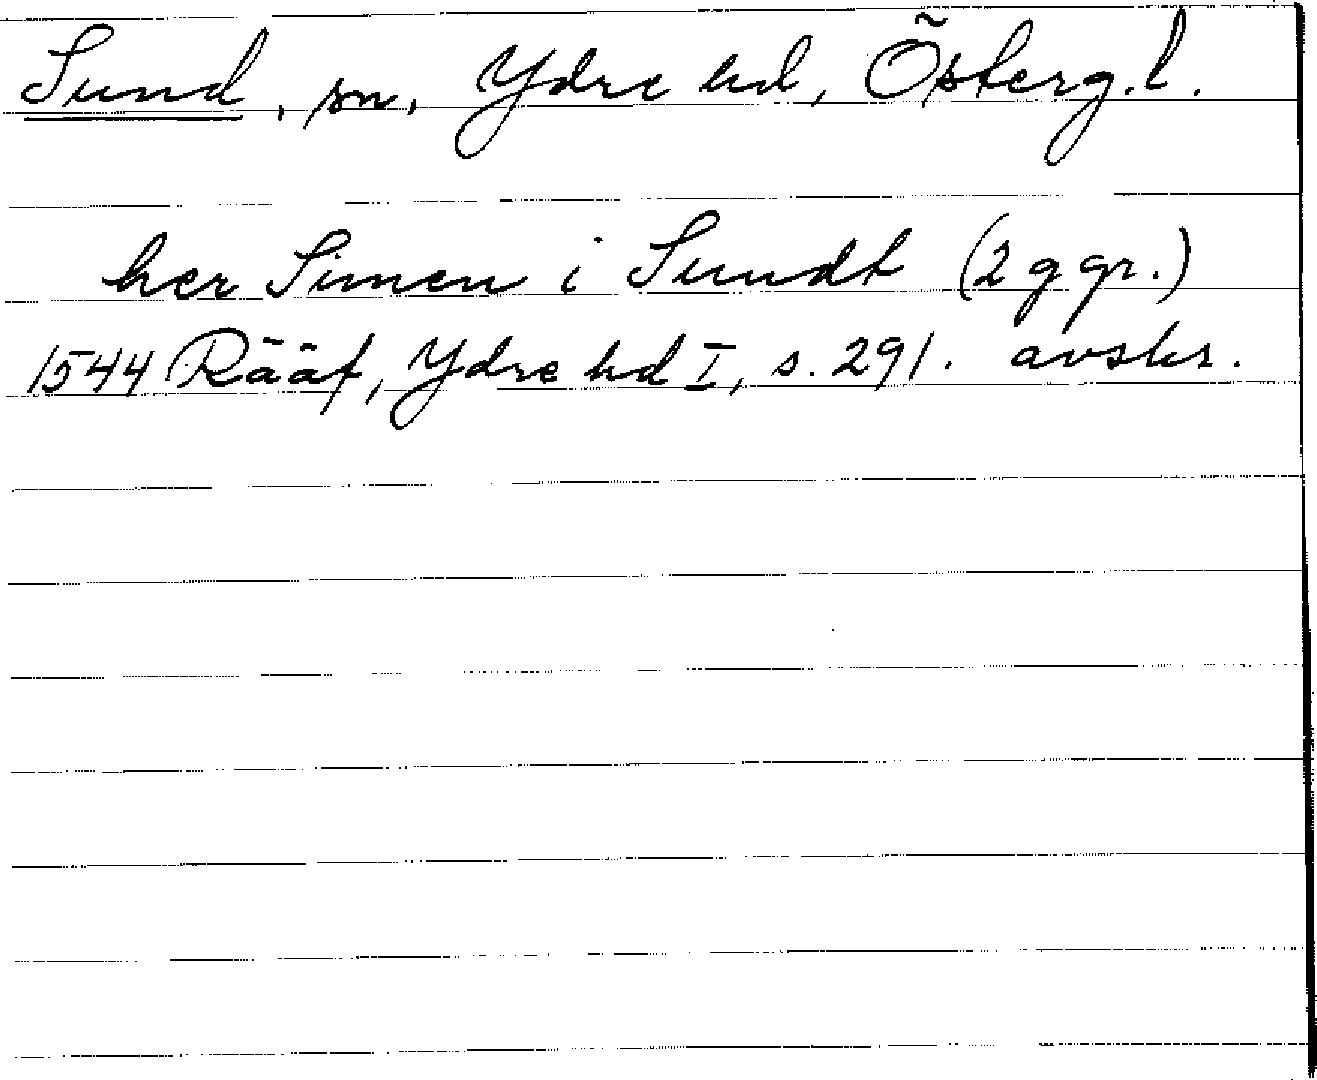 Sund, sn, Ydre hd, Österg.l.
her Simen i Sundt (2 ggr.)
1544 Rääf, Ydre hd I, s. 291. avskr.